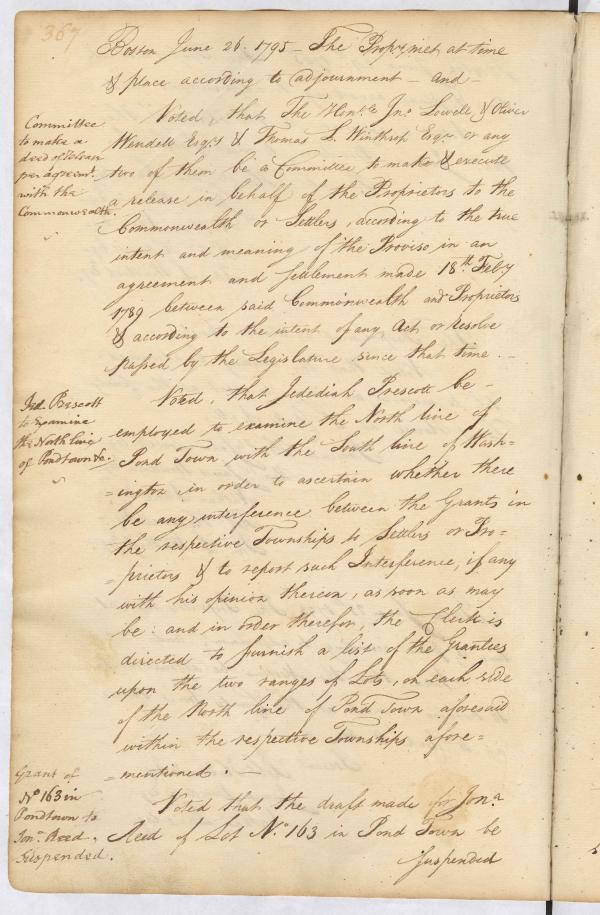 367
Boston June 26. 1795 – The Prop.rs met at time
& place according to adjournment – and –
Committee
to make a
deed of release
per agreem.t
with the
Commonwealth.
Voted, that The Hon.ble Jn.o Lowell & Oliver
Wendell Esq.rs & Thomas L. Winthrop Esq.r or any
two of them be a Committee to make & execute
a release in behalf of the Proprietors to the
Commonwealth or Settlers, acording to the true
intent and meaning of the Proviso, in an
agreement and settlement made 18.th Feb.y
1789 between said Commonwealth and Proprietors
& according to the intent of any Act or resolve
passed by the Legislature since that time. –
Jed. Prescott
to Examine
the North line
of Pondtown &c.
Voted, that Jedediah Prescott be –
employed to examine the North line of
Pond Town with the South line of Wash=
=ington, in order to ascertain whether there
be any interference between the Grants in
the respective Townships to Settlers or Pro=
=prietors & to report such Interference, if any
with his opinion thereon, as soon as may
be: and in order therefor, the Clerk is
directed to furnish a list of the Grantees
upon the two ranges of Lots, on each side
of the North line of Pond Town aforesaid
within the respective Townships afore=
=mentioned. –
Grant of
N.o 163 in
Pondtown to
Jon.a Reed.
Suspended.
Voted that the draft made for Jon.a
Reed of Lot N.o 163 in Pond Town be
Suspended